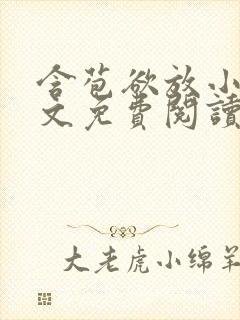 含苞欲放小
文免费閱讀
大老虎小绵羊